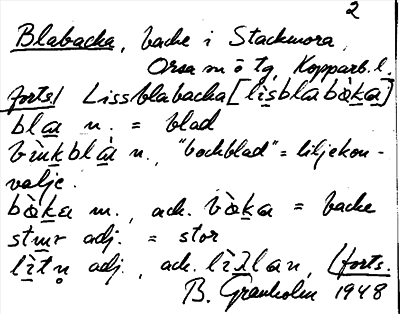 2
Blabacka, backe i Stackmora,
Orsa sn ö tg, Kopparb. l.
forts./ Lissblabacka [lìsblabòka]
bla n. = blad
bùkblà n., "bockblad" = liljekon-
valje.
bòka m., ack. bòka = backe
stur adj. = stor
lìtṇ adj., ack. lìƛan, /forts.
B. Granholm 1948